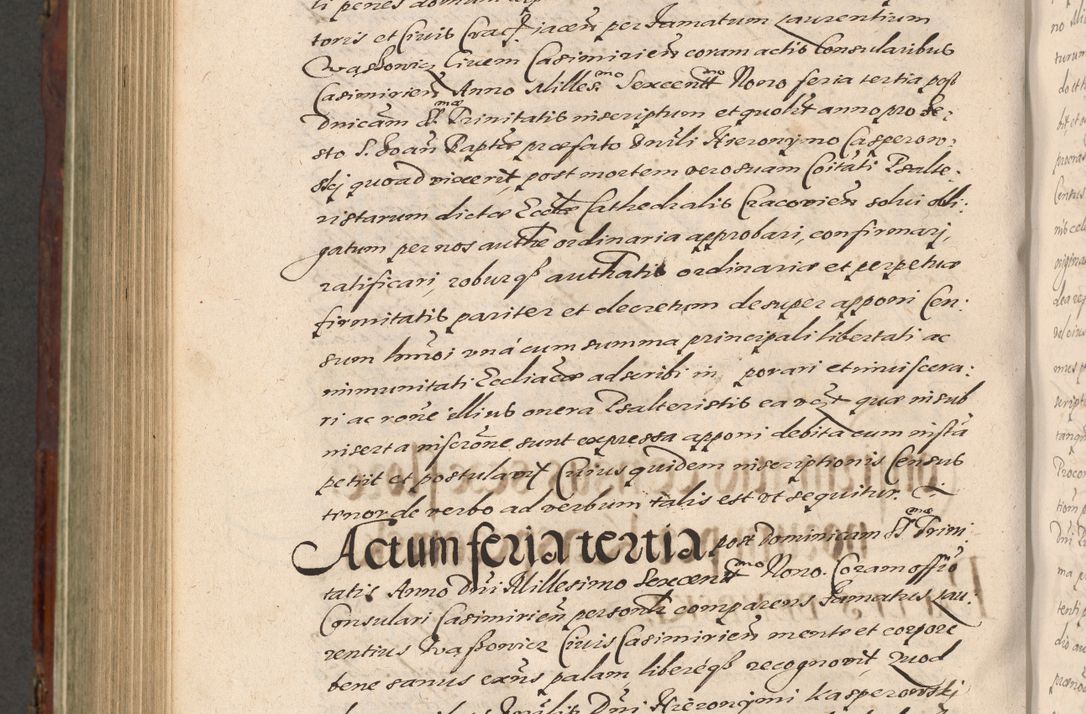 toris et Civis Crac̄ jacen̄ per Famatum Laurentium
Wąssowicz Civem Casimirien̄ coram actis Consularibus
Casimirien̄ Anno Milles:mo Sexcentmo Nono feria tertia post
Dnicam SS.mæ Trinitatis inscriptum et quolt anno pro Fe:
sto S. Joan̄ Baptæ præfato Dnuli Hieronymo Casperow:
skj quoad vixerit, post mortem vero suam Coitati Psalte:
ristarum dictæ Eccłæ Cathedralis Cracovien̄ solvi obli:
gatum per nos authe ordinaria approbari, confirmarj,
ratificari, roburqß authtatis ordinariæ et perpetuæ
firmitatis pariter et decretum desuper apponi Cen:
sum hmōi vná cum summa principali libertati ac
immunitati Eccliacæ adscribi in porari et inviscera:
ri ac rone illius onera Psalteristis ea rct quæ in sub
inserta inscrone sunt expressa apponi debita cum insta
petiit et postulavit Cuius quidem inscriptionis Census
tenor de verbo ad verbum talis est vt sequitur.
Actum feria tertia post Dominicam SS.mæ Trini:
tatis Anno Dni Millesimo Sexcentmo Nono. Coram offio
Consulari Casimirien̄ personlr comparens Famatus Lau:
rentius Wąssowicz Civis Casimirien̄ mente et corpore
bene sanus exns palam liberéqß recognovit, Quod
Dni Hieronymi Kasperowskj